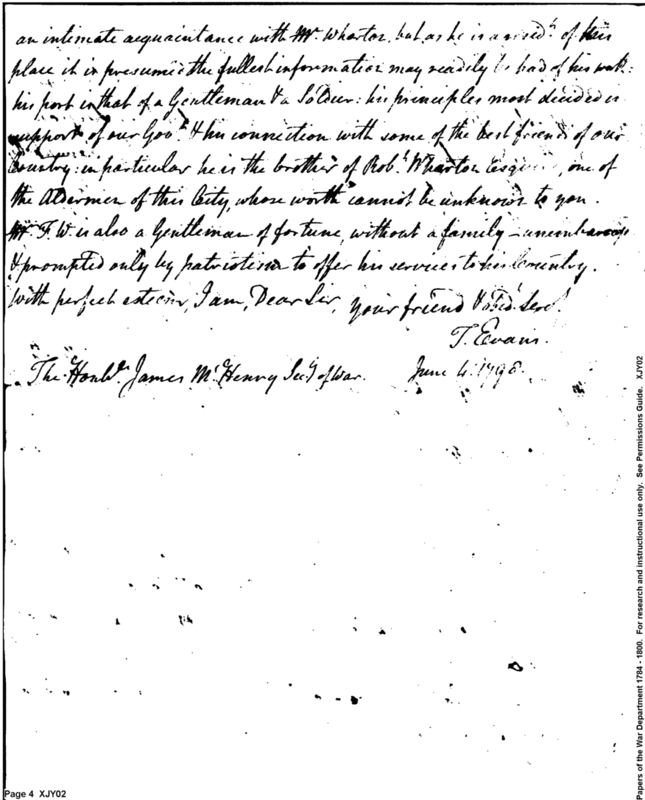 an intimate acquaintance with Mr. Wharton, but as he is a resid.t of this
place it is presumed the fullest information may readily be had of his
his port is that of a Gentleman & a Soldier: his principles most decided in
support of our Gov.t & his connection with some of the best friends of our
Country: in particular he is the brother of Rob.t Wharton Esqu, one of
the Aldermen of this City, whose worth cannot be unknown to you.
Mr. F. W. is also a Gentleman of fortune, without a family -
& prompted only by patriotism to offer his services to his Country.
With perfect esteem, I am, Dear Sir, your friend & obed. Serv.t
T. Evans.
The Honble. James McHenry Secy of War. June 4. 1798.
Page 4 XJY02
Papers of the War Department 1784 - 1800. For research and instructional use only. See Permissions Guide. XJY02